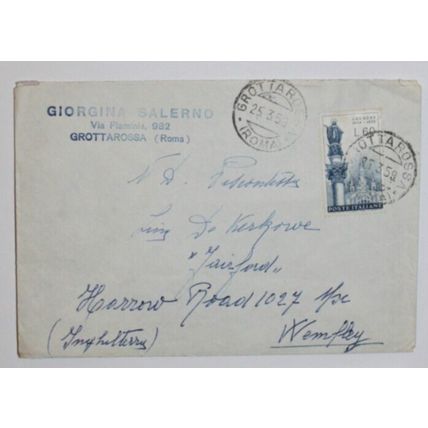 GIORGINA SALERNO
Via Flaminia, 982
GROTTAROSSA (Roma)
GROTTAROSSA
25.3.58
(ROMA)
LOURDES
1858 - 1958
L.60
POSTE ITALIANE
GROTTAROSSA
3.58
N. D.
De Kerkowe
"Fairford"
Harrow Road 1027
Wembley
(Inghilterra)